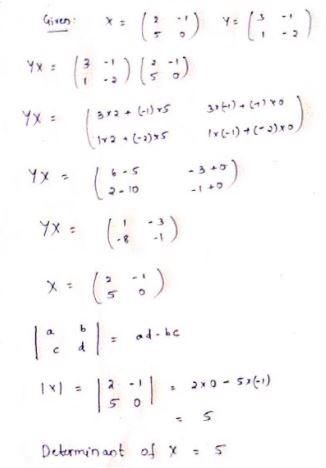 Given: X = ( 2 -1 Y = ( 3 -1
5 0 ) 1 -2 )
YX = ( 3 -1 ( 2 -1
1 -2 ) 5 0 )
YX = ( 3x2 + (-1)x5 3x(-1) + (-1)x0
1x2 + (-2)x5 1x(-1) + (-2)x0 )
YX = ( 6-5 -3+0
2-10 -1+0 )
YX = ( 1 -3
-8 -1 )
X = ( 2 -1
5 0 )
| a b
c d | = ad-bc
|X| = | 2 -1 | = 2x0 - 5x(-1)
5 0
= 5
Determinant of X = 5